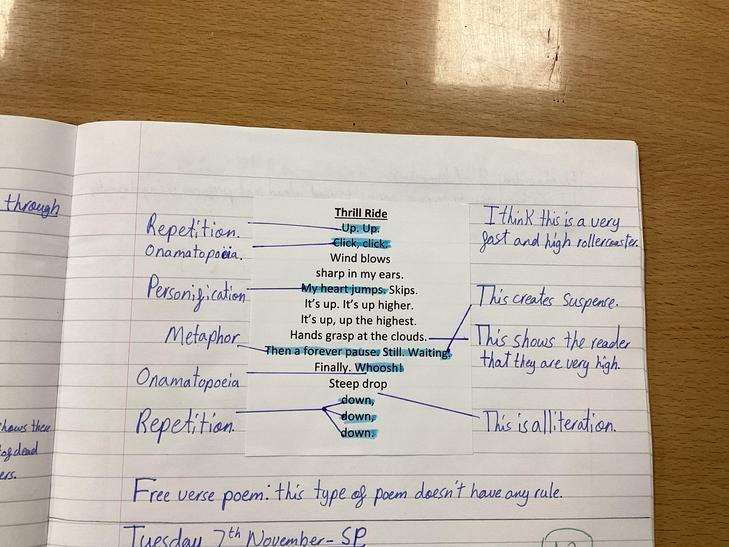 through
hows thee
of dead
ers.
Repetition.
Onamatopoeia.
Personification
Metaphor
Onamatopoeia
Repetition.
Thrill Ride
Up. Up.
Click, click.
Wind blows
sharp in my ears.
My heart jumps. Skips.
It's up. It's up higher.
It's up, up the highest.
Hands grasp at the clouds.
Then a forever pause. Still. Waiting.
Finally. Whoosh!
Steep drop
down,
down,
down.
I think this is a very
fast and high rollercoaster.
This creates suspense.
This shows the reader
that they are very high.
This is alliteration.
Free verse poem: this type of poem doesn't have any rule.
Tuesday 7th November - SP